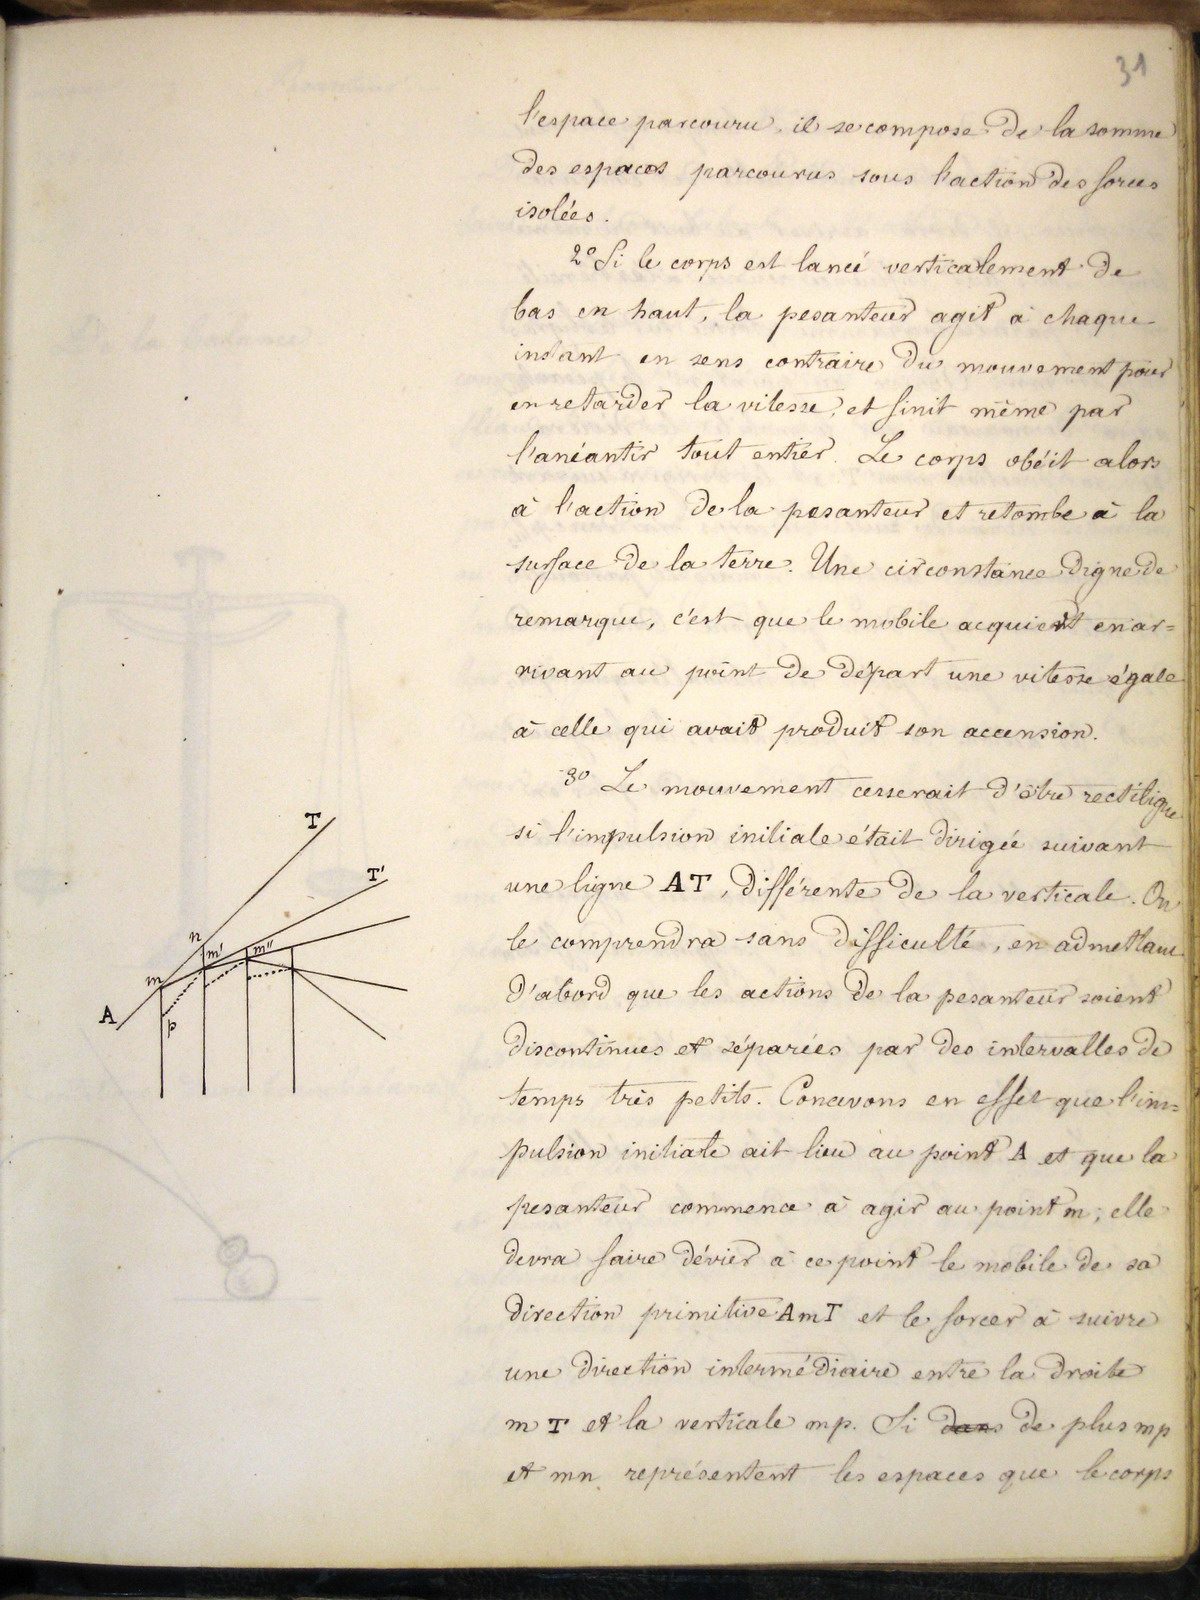 31
l'espace parcouru, il se compose de la somme
des espaces parcourus sous l'action des forces
isolées.
2° Si le corps est lancé verticalement de
bas en haut, la pesanteur agit à chaque
instant en sens contraire du mouvement pour
en retarder la vitesse, et finit même par
l'anéantir tout entier. Le corps obéit alors
à l'action de la pesanteur et retombe à la
surface de la terre. Une circonstance digne de
remarque, c'est que le mobile acquiert en ar=
rivant au point de départ une vitesse égale
à celle qui avait produit son accension.
3° Le mouvement cesserait d'être rectiligne
si l'impulsion initiale était dirigée suivant
une ligne AT, différente de la verticale. On
le comprendra sans difficulté, en admettant
d'abord que les actions de la pesanteur soient
discontinues et séparées par des intervalles de
temps très petits. Concevons en effet que l'im=
pulsion initiale ait lieu au point A et que la
pesanteur commence à agir au point m; elle
devra faire dévier à ce point le mobile de sa
direction primitive AmT et le forcer à suivre
une direction intermédiaire entre la droite
m T et la verticale mp. Si dans de plus mp
et mn représentent les espaces que le corps
T
T'
n
m'
m"
m
A
p